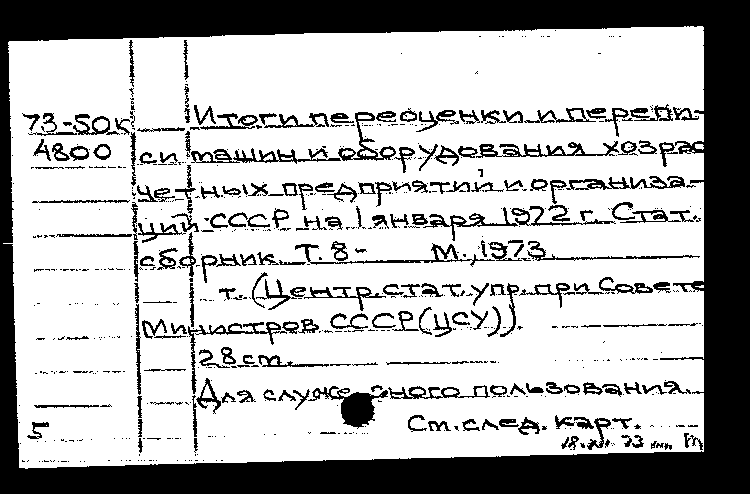 73-50к Итоги переоценки и перепи-
4800 си машин и оборудования хозрас
четных предприятий и организа-
ций СССР на 1 января 1972 г. Стат.
сборник. Т. 8- М., 1973.
т. (Центр. стат. упр. при Совете
Министров СССР (ЦСУ)).
28 см.
Для служе ного пользования.
5 См. след. карт.
18. 73